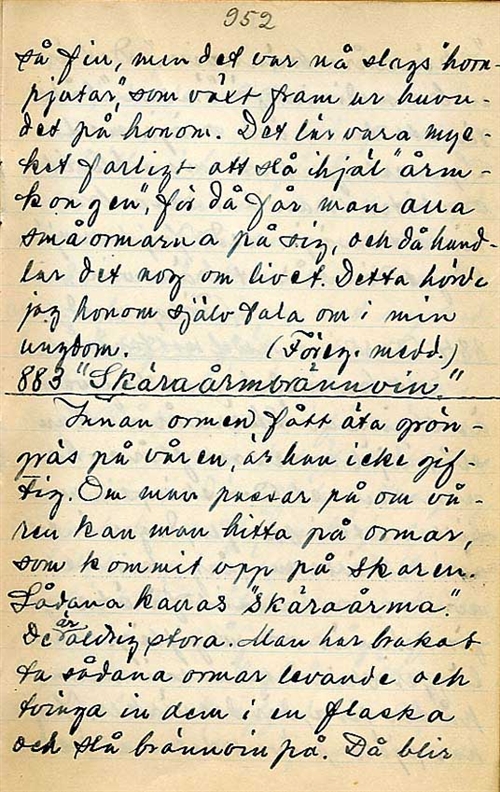 952
så fin, men det var nå slags "horn-
pjutar", som växt fram ur huvu-
det på honom. Det lär vara myc-
ket farligt att slå ihjäl "årm-
kongen", för då får man alla
småormarna på sig, och då hand-
lar det nog om livet. Detta hörde
jag honom själv tala om i min
ungdom. (Föreg. medd.)
883 "Skåraårmbrännvin."
Innan ormen fått äta grön-
gräs på våren, är han icke gif-
tig. Om man passar på om vå-
ren kan man hitta på ormar,
som kommit upp på skaren.
Sådana kallas "skåraårma".
De är aldrig stora. Man har brukat
ta sådana ormar levande och
tvinga in dem i en flaska
och slå brännvin på. Då blir